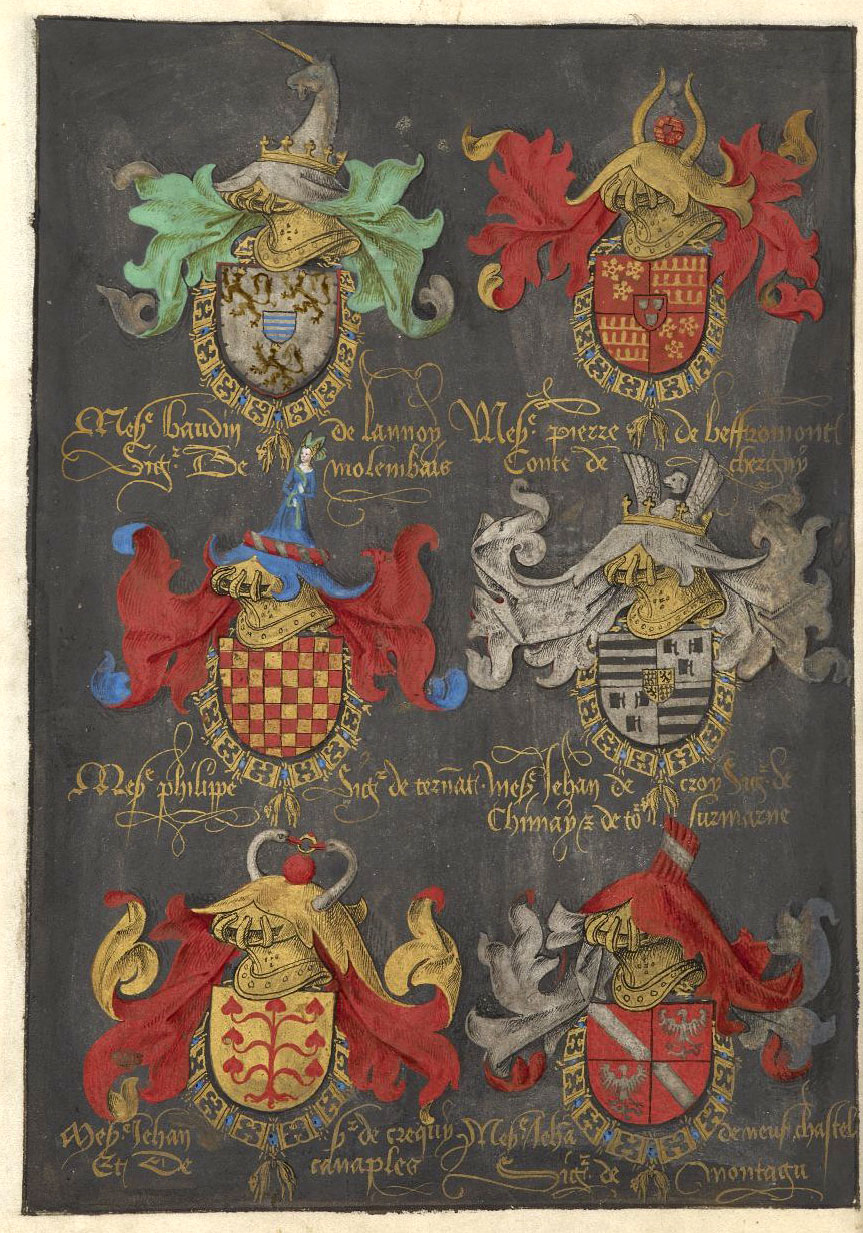 Mess.e baudin de lannoy
Sigr. De molembais
Mess.e pierre de beffromont
Conte de chergny
Mess.e philippe Sigr. de ternāt
Mess.e Jehan de croy Sigr. de
Chimay z de tor surmarne
Mess.e Jehan sr. de crequy
Et De canaples
Mess.e Jehā de neuf chastel
Sigr. de montagu